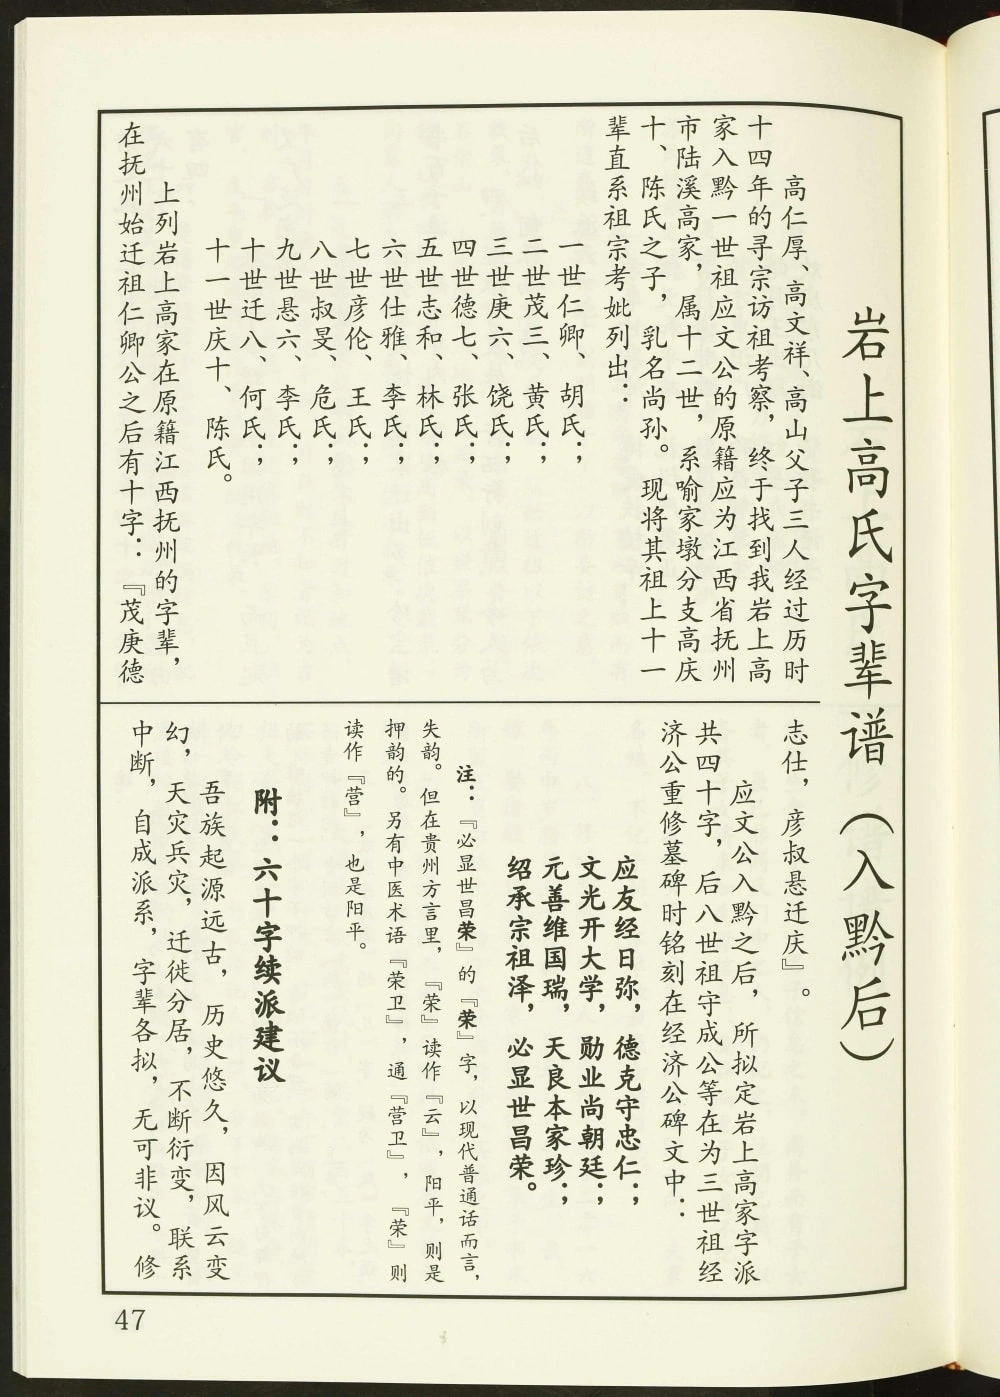 岩上高氏字辈谱（入黔后）
高仁厚、高文祥、高山父子三人经过历时
十四年的寻宗访祖考察，终于找到我岩上高
家入黔一世祖应文公的原籍应为江西省抚州
市陆溪高家，属十二世，系喻家墩分支高庆
十、陈氏之子，乳名尚孙。现将其祖上十一
辈直系祖宗考妣列出：
一世仁卿、胡氏；
二世茂三、黄氏；
三世庚六、饶氏；
四世德七、张氏；
五世志和、林氏；
六世仕雅、李氏；
七世彦伦、王氏；
八世叔旻、危氏；
九世悬六、李氏；
十世迁八、何氏；
十一世庆十、陈氏。
上列岩上高家在原籍江西抚州的字辈，
在抚州始迁祖仁卿公之后有十字：『茂庚德
志仕，彦叔悬迁庆』。
应文公入黔之后，所拟定岩上高家字派
共四十字，后八世祖守成公等在为三世祖经
济公重修墓碑时铭刻在经济公碑文中：
应友经日弥，德克守忠仁；
文光开大学，勋业尚朝廷；
元善维国瑞，天良本家珍；
绍承宗祖泽，必显世昌荣。
注：『必显世昌荣』的『荣』字，以现代普通话而言，
失韵。但在贵州方言里，『荣』读作『云』，阳平，则是
押韵的。另有中医术语『荣卫』，通『营卫』，『荣』则
读作『营』，也是阳平。
附：六十字续派建议
吾族起源远古，历史悠久，因风云变
幻，天灾兵灾，迁徙分居，不断衍变，联系
中断，自成派系，字辈各拟，无可非议。修
47